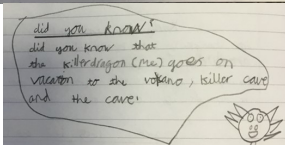 did you know?
did you know that
the killerdragon (me) goes on
vacation to the volkano, killer cave
and the cave.